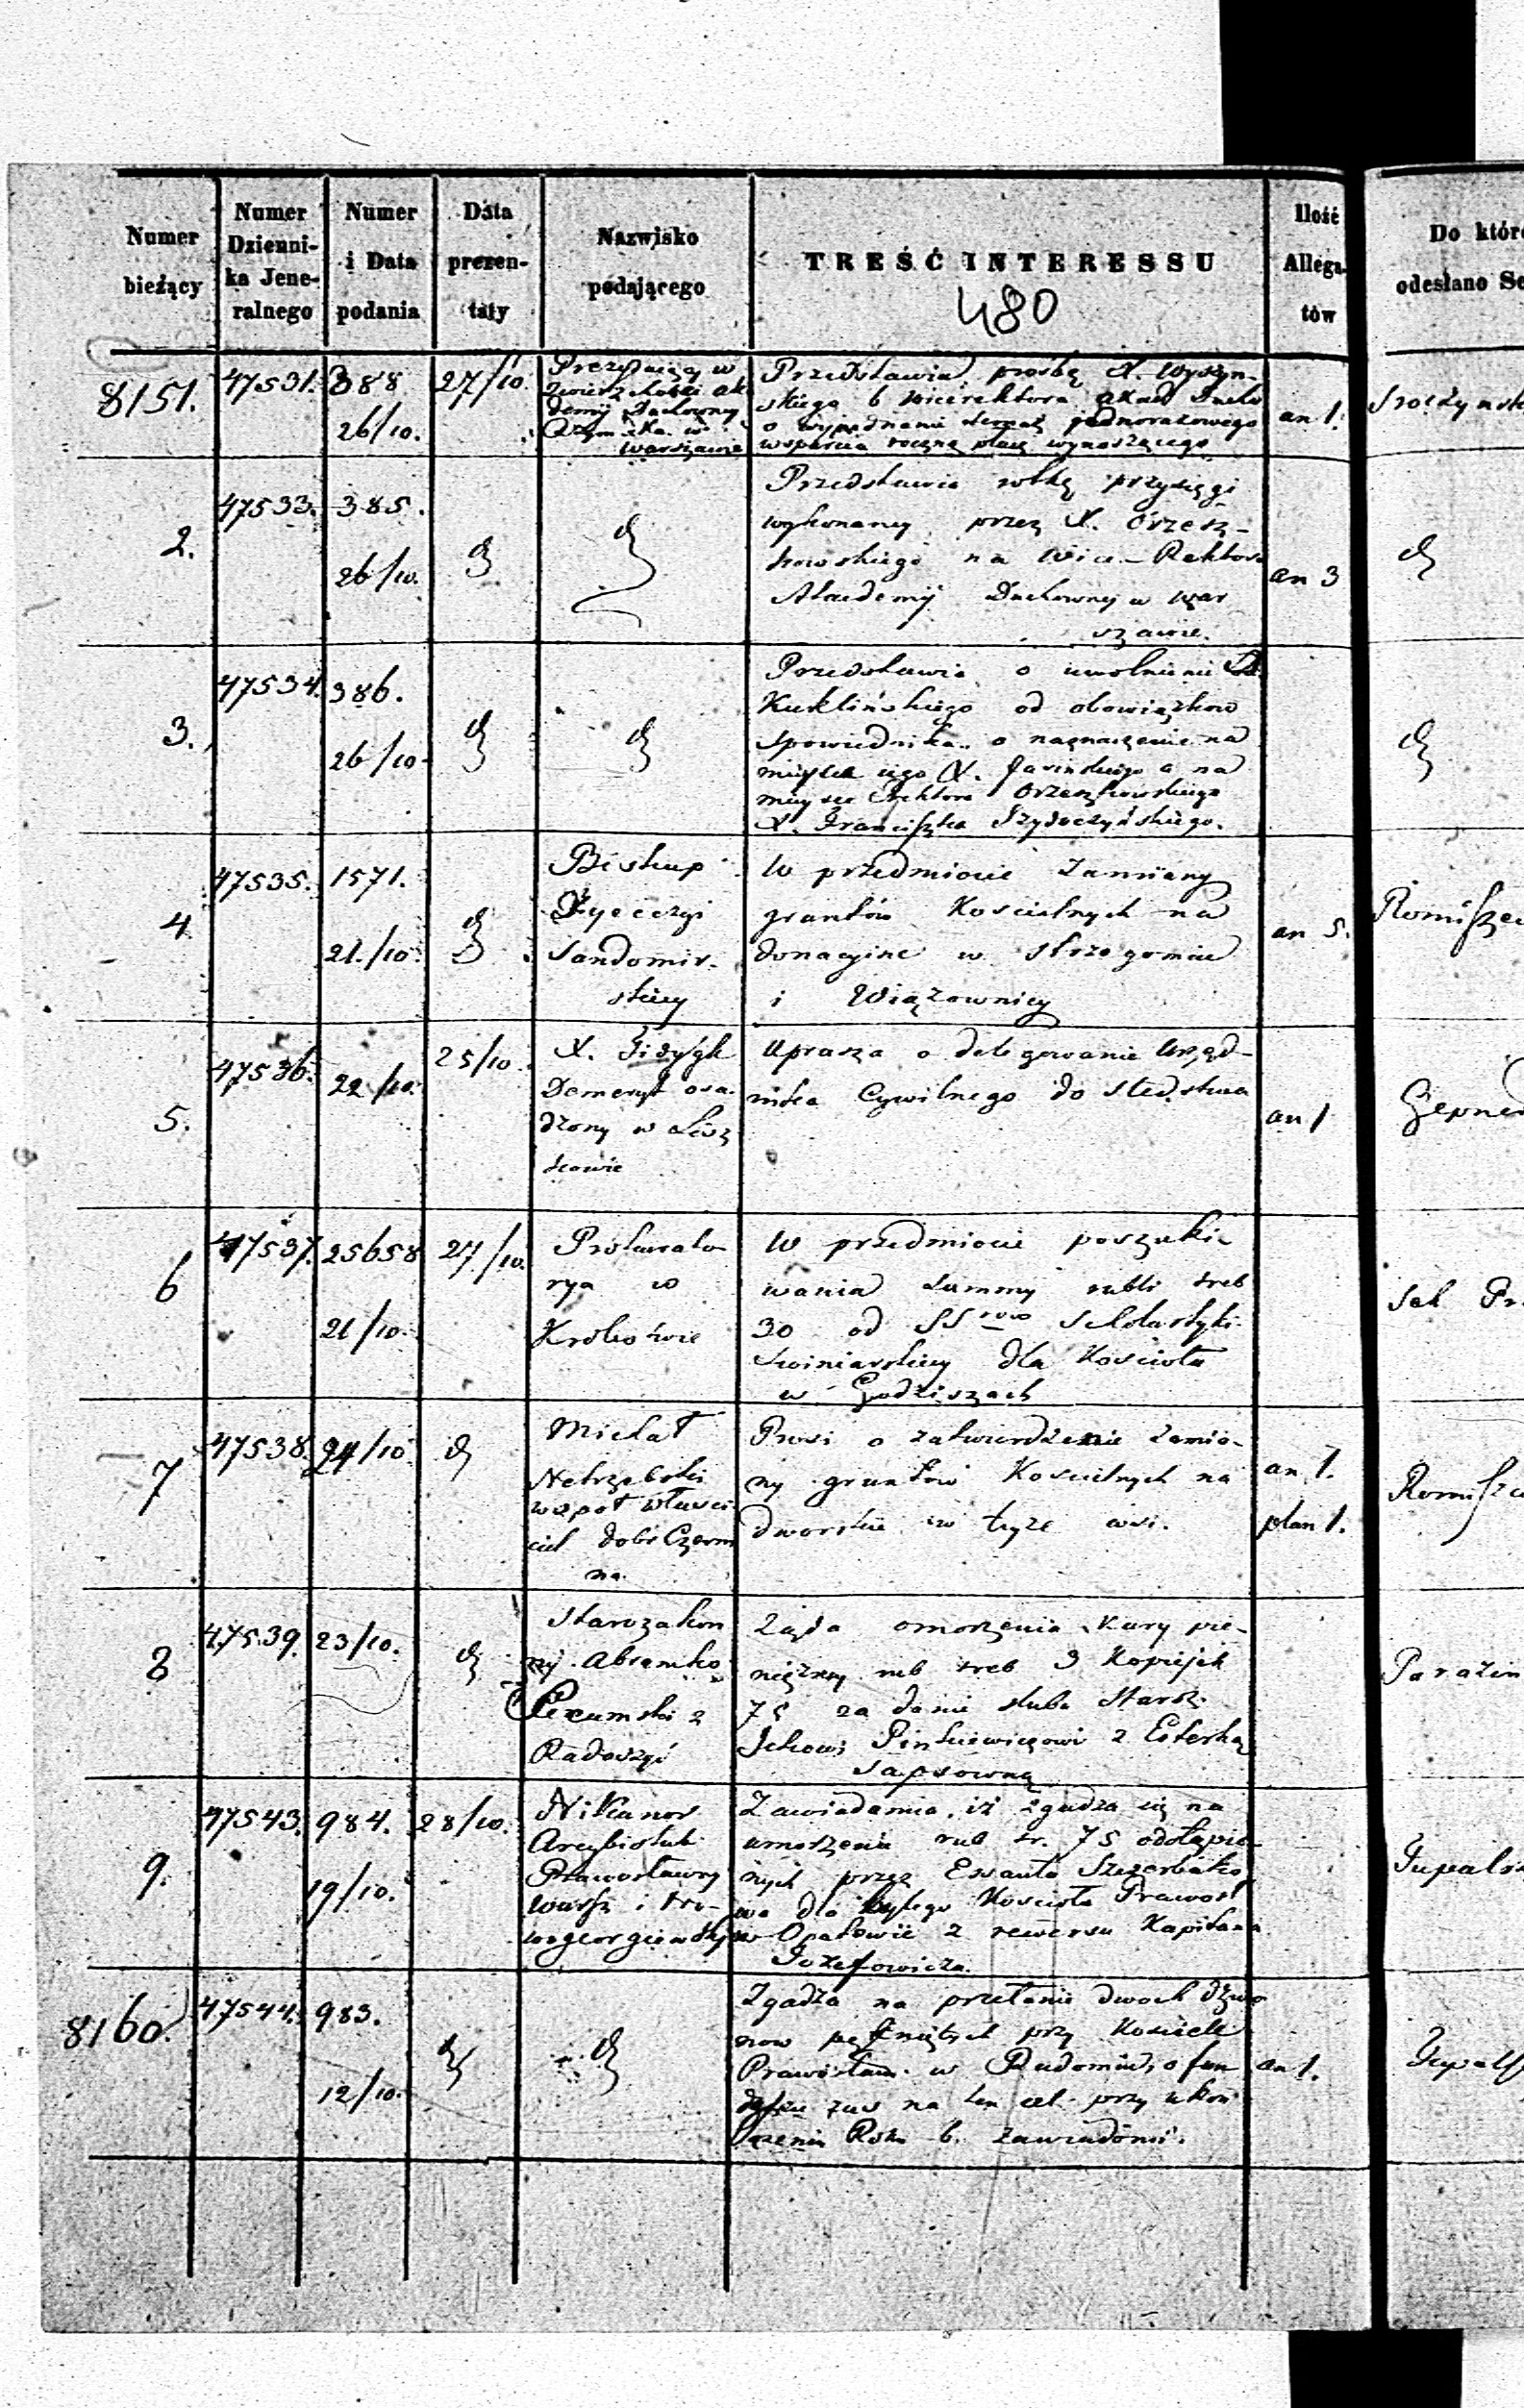 Numer bieżący
Numer Dzienni-
ka Jene-
ralnego
Numer
i Data
podania
Data
prezen-
taty
Nazwisko
podającego
TREŚĆ INTERESSU
480
Ilość
Allega-
tów
Do któr
odesłano Se
8151.
47531.
388
26/10.
27/10.
w
Duchowny
Rzymska. w
Warszawie
Przedstawia prośbę X. Wyszyn-
skiego b wicerektora Akad Ducho
o wyjednanie jednorazowego
wsparcia roczną płacę wynoszącego
an 1.
2.
47533.
385.
26/10.
Przedstawia rotkę przysięgi
wykonaney przez X. Orzesz-
kowskiego na Wice-Rektora
Akademij Duchowney w War
szawie.
an 3
3.
47534.
386.
26/10.
Przedstawia o uwolnienie
Kuklińskiego od obowiązkow
Spowiednika o naznaczenie na
miejsce jego X. Jasinskiego a na
miejsce Rektora Orzeszkowskiego
X. Franciszka
4
47535.
1571.
21./10.
Biskup
Dyecezyi
Sandomir-
skiey
W przedmiocie Zamiany
gruntów Kościelnych na
donacyjne w Strzegomiu
i Wiązownicy
an 5.
5.
47536.
22/10.
25/10.
X.
Demeryt osa-
dzony w Lisz
kowie
Uprasza o delegowanie Urzęd-
nika Cywilnego do Sledztwa
an 1
6
47537.
25658
21/10.
27/10.
Prokurato-
rya w
Królestwie
W przedmiocie poszuki-
wania Summy rubli sreb
30 od SSrow Scholastyki
Swiniarskiey dla Kościoła
w Godziszach
Sek Pr
7
47538.
24/10
Michał
Netrzebski
współ właści-
ciel dobr Czerm
na.
Prosi o zatwierdzenie zamia-
ny gruntów Kościelnych na
dworskie w tejże wsi.
an 1.
plan 1.
8
47539.
23/10.
Starozakon
ny Abramko
z
Radoszyc
Żąda omorzenia Kary pie-
niężney rub sreb 3 Kopiejek
75 za danie slubu Staroz.
Ickowi Pinkiewiczowi z Esterką
Sapsowną
9.
47543.
984.
19/10.
28/10.
Nikanor
Arcybiskub
Prawosławny
Warsz i No-
wogeorgiewskij
Zawiadamia, iż zgadza się na
umorzenie rub sr. 75 odstąpio-
nych przez Szczerbako
wa dla byłego Kościoła Prawosł
w Opatowie z rewersu Kapitana
Jozefowicza.
8160.
47544.
983.
12/10.
Zgadza na przelanie dwoch dzwo
now pękniętych przy Kosciele
Prawosław. w Radomiu, o fun
duszu zaś na ten cel przy ukoń
czeniu Roku b. zawiadomi.
an 1.